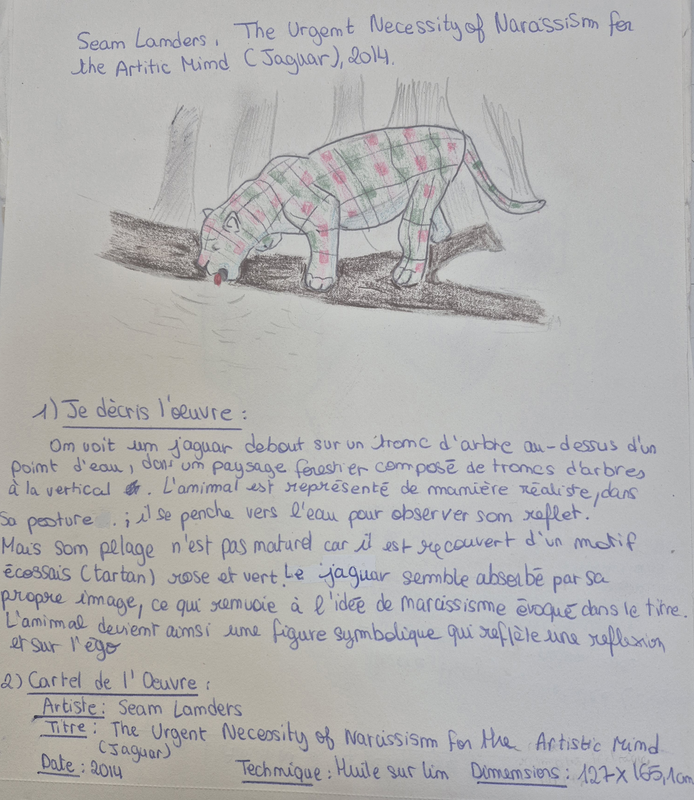 Sean Landers, The Urgent Necessity of Narcissism for
the Artitic Mind (Jaguar), 2014.
1) Je dècris l'œuvre :
On voit un jaguar debout sur un tronc d'arbre au-dessus d'un
point d'eau, dans un paysage forestier composé de troncs d'arbres
à la vertical . L'animal est représenté de manière réaliste, dans
sa posture . ; il se penche vers l'eau pour observer son reflet.
Mais son pelage n'est pas naturel car il est recouvert d'un motif
écossais (tartan) rose et vert. Le jaguar semble absorbé par sa
propre image, ce qui renvoie à l'idée de narcissisme évoqué dans le titre.
L'animal devient ainsi une figure symbolique qui reflète une reflexion
et sur l'ègo
2) Cartel de l'Oeuvre :
Artiste : Sean Landers
Titre : The Urgent Necessity of Narcissism for the Artistic Mind
(Jaguar)
Date : 2014 Technique : Huile sur lin Dimensions : 127 x 165,1cm